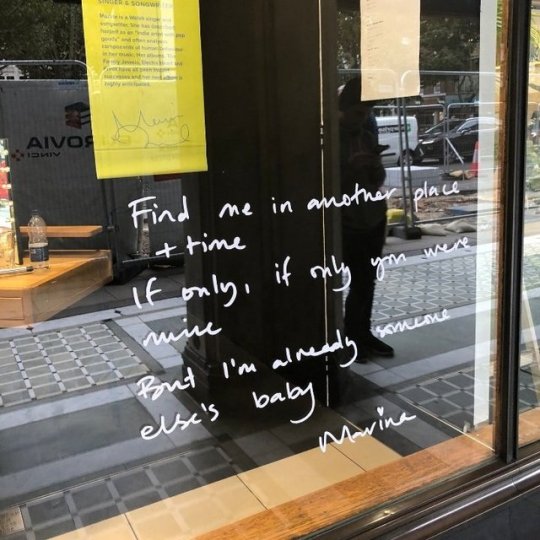 SINGER & SONGWRITER
Marina is a Welsh singer and
songwriter. She has described
herself as an "indie artist with pop
goals" and often analyses
components of human behaviour
in her music. Her albums, The
Family Jewels, Electra Heart and
Froot have all been
successes and her next album is
highly anticipated.
Find me in another place
+ time
If only, if only you were
mine
But I'm already someone
else's baby
Marina
EUROVIA
VINCI